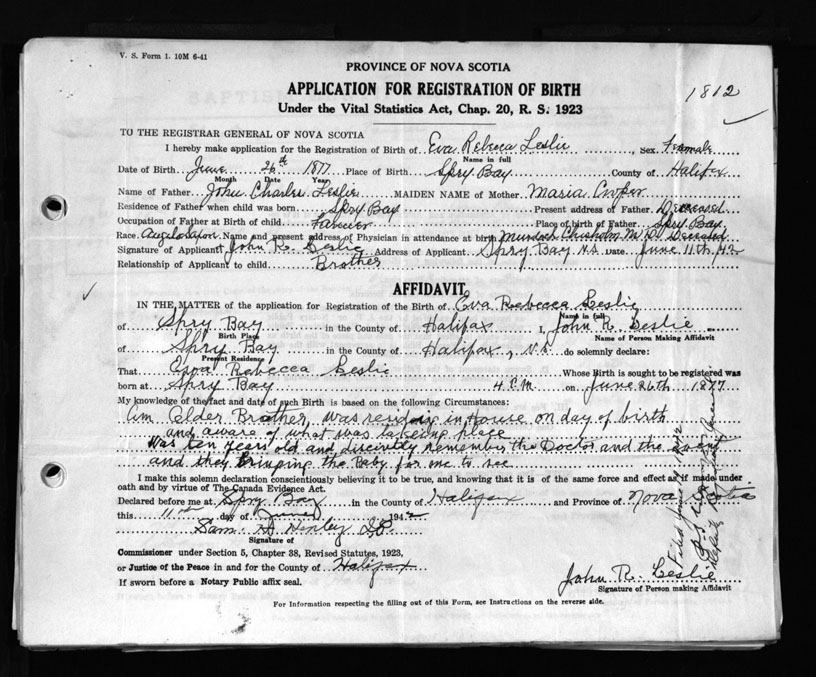 V. S. Form 1. 10M 6-41
PROVINCE OF NOVA SCOTIA
APPLICATION FOR REGISTRATION OF BIRTH
Under the Vital Statistics Act, Chap. 20, R. S. 1923
1812
TO THE REGISTRAR GENERAL OF NOVA SCOTIA
I hereby make application for the Registration of Birth of Eva Rebecca Leslie, Sex Female
Name in full
Date of Birth June 26th 1877 Place of Birth Spry Bay County of Halifax
Month Date Year
Name of Father John Charles Leslie MAIDEN NAME of Mother Maria
Residence of Father when child was born Spry Bay Present address of Father Deceased
Occupation of Father at Birth of child Place of birth of Father Spry Bay
Race Anglo Saxon Name and present address of Physician in attendance at birth Murdoch Chisholm M.D. Deceased
Signature of Applicant John R. Leslie Address of Applicant Spry Bay N.S. Date June 11th, 42
Relationship of Applicant to child Brother
AFFIDAVIT
IN THE MATTER of the application for Registration of the Birth of Eva Rebecca Leslie
Name in full
of Spry Bay in the County of Halifax I, John R. Leslie
Birth Place Name of Person Making Affidavit
of Spry Bay in the County of Halifax, N.S. do solemnly declare:
Present Residence
That Eva Rebecca Leslie Whose Birth is sought to be registered was
born at Spry Bay on June 26th 1877
My knowledge of the fact and date of such Birth is based on the following Circumstances:
Am Elder Brother, was residing in House on day of birth
and aware of what was takeing place
Was ten years old and remember the Doctor and the event
and they bringing the Baby for me to see
I make this solemn declaration conscientiously believing it to be true, and knowing that it is of the same force and effect as if made under
oath and by virtue of The Canada Evidence Act.
Declared before me at Spry Bay in the County of Halifax and Province of Nova Scotia
this 11th day of June 1942
Sam. H. Henley J.P.
Signature of
Commissioner under Section 5, Chapter 38, Revised Statutes, 1923,
or Justice of the Peace in and for the County of Halifax
If sworn before a Notary Public affix seal.
John R. Leslie
Signature of Person making Affidavit
For Information respecting the filling out of this Form, see Instructions on the reverse side.